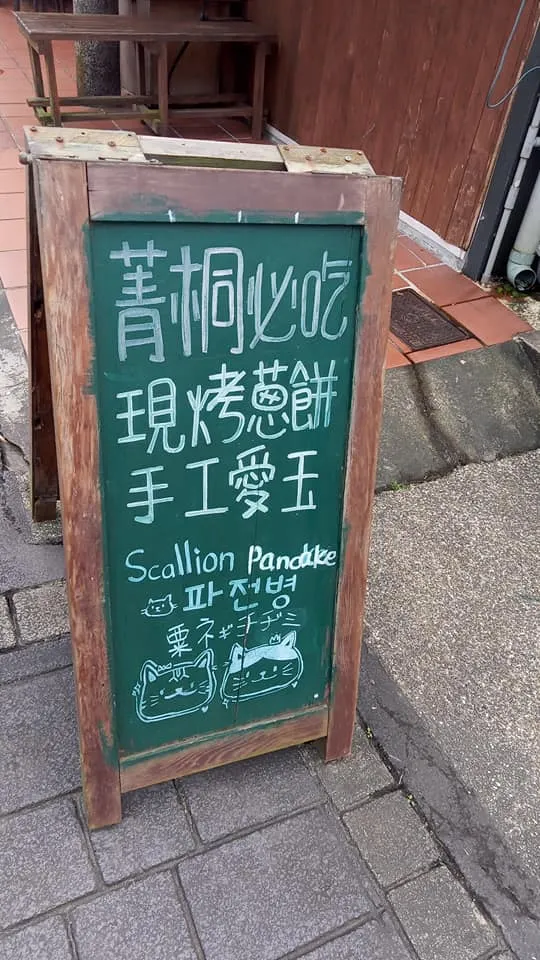 菁桐必吃
現烤蔥餅
手工愛玉
Scallion Pancake
파전병
粟ネギチヂミ